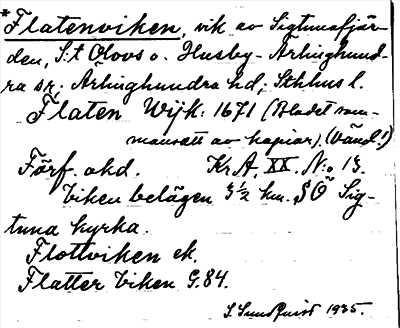 * Flatenviken, vik av Sigtunafjär-
den, S:t Olovs o. Husby-Ärlinghund-
ra sr; Ärlinghundra hd; Sthlms l.
Flaten Wijk: 1671 (Bladet sam-
mansatt av kopior). (Vänd!)
Förf. okd. Kr.A. XX. N:o 13.
Viken belägen 3½ km. SÖ Sig-
tuna kyrka.
Flottviken ek.
Flatter Viken G.84.
S. Sundquist 1935.